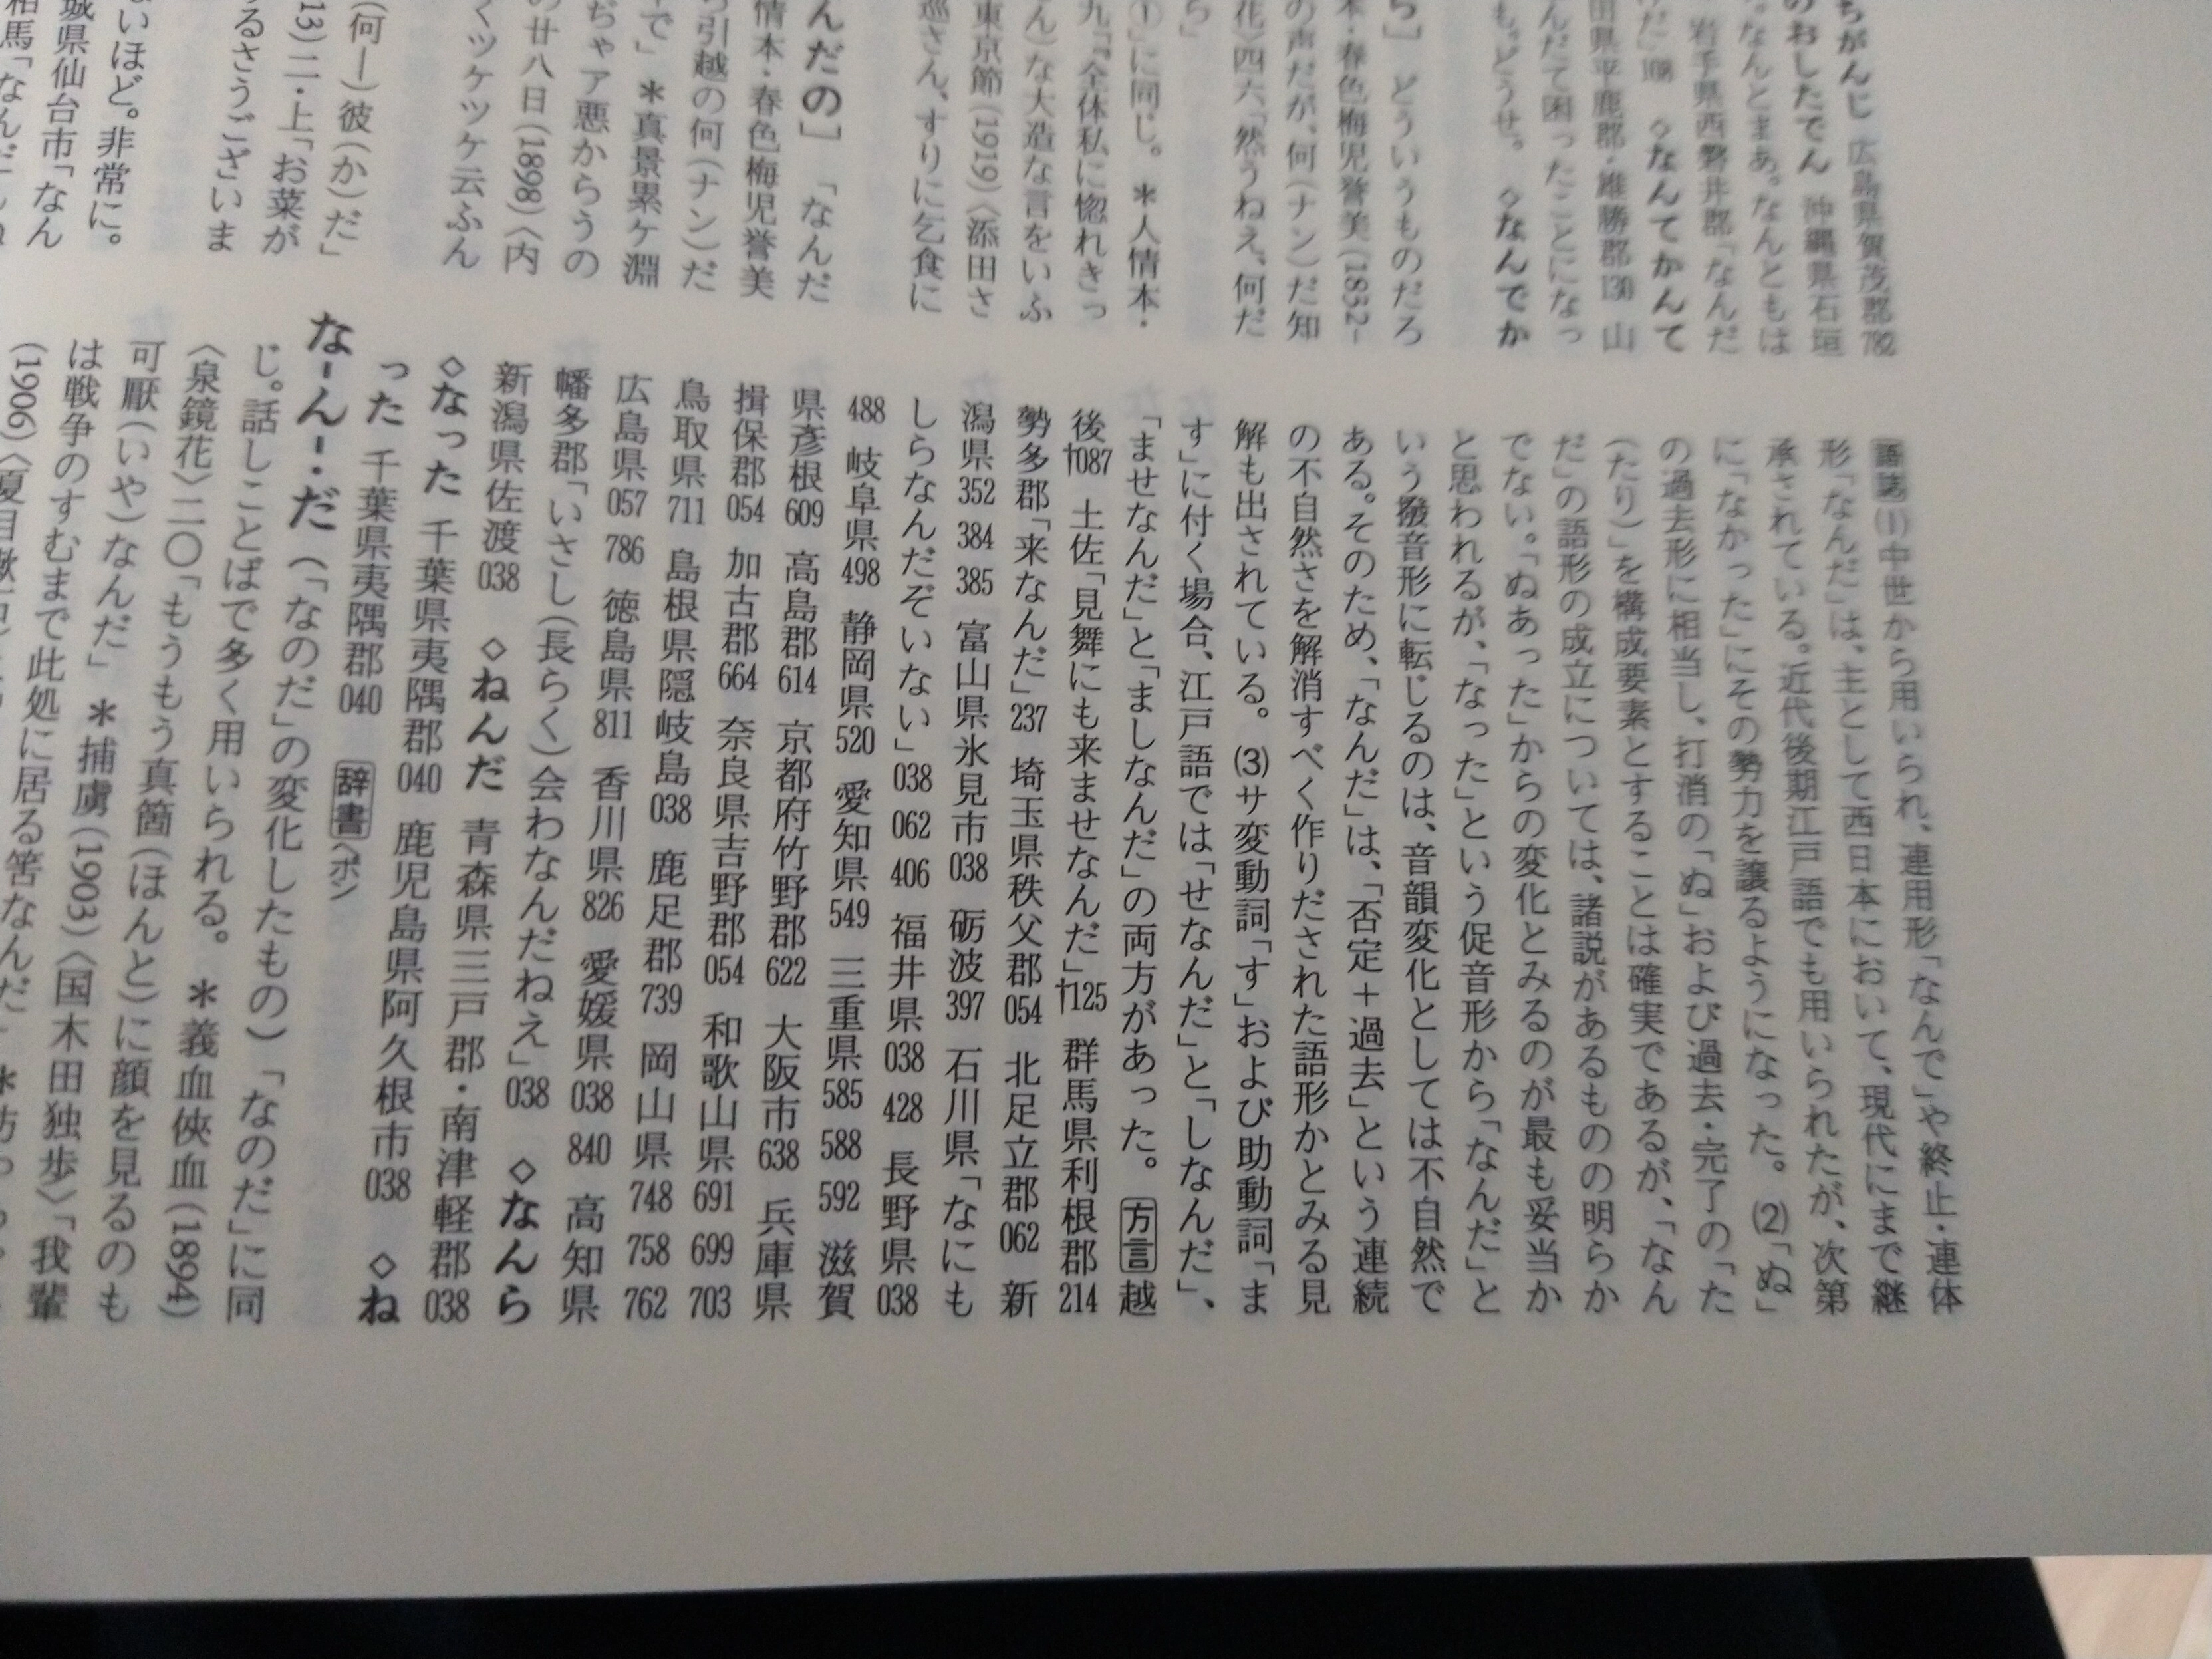 ちがんじ 広島県賀茂郡782
のおしたでん 沖縄県石垣
なんとまあ。なんともは
岩手県西磐井郡「なんだ
◇なんてかんて
田県平鹿郡・雄勝郡130 山
んだて困ったことになっ
も。どうせ。 ◇なんでか
ら〕 どういうものだろ
本・春色梅児誉美(1832-
の声だが、何(ナン)だ知
花〉四六「然うねえ、何だ
ら」
①」に同じ。 *人情本・
九「全体私に惚れきっ
ん)な大造な言をいふ
東京節(1919)〈添田さ
巡さん、すりに乞食に
んだの〕 「なんだ
情本・春色梅児誉美
引越の何(ナン)だ
で」 *真景累ケ淵
ぢゃア悪からうの
廿八日(1898)〈内
くツケツケ云ふん
(何―)彼(か)だ」
13)二・上「お菜が
るさうございま
いほど。非常に。
城県仙台市「なん
語誌(1)中世から用いられ、連用形「なんで」や終止・連体
形「なんだ」は、主として西日本において、現代にまで継
承されている。近代後期江戸語でも用いられたが、次第
に「なかった」にその勢力を譲るようになった。(2)「ぬ」
の過去形に相当し、打消の「ぬ」および過去・完了の「た
(たり)」を構成要素とすることは確実であるが、「なん
だ」の語形の成立については、諸説があるものの明らか
でない。「ぬあった」からの変化とみるのが最も妥当か
と思われるが、「なった」という促音形から「なんだ」と
いう撥音形に転じるのは、音韻変化としては不自然で
ある。そのため、「なんだ」は、「否定＋過去」という連続
の不自然さを解消すべく作りだされた語形かとみる見
解も出されている。(3)サ変動詞「す」および助動詞「ま
す」に付く場合、江戸語では「せなんだ」と「しなんだ」、
「ませなんだ」と「ましなんだ」の両方があった。 方言 越
後†087 土佐「見舞にも来ませなんだ」†125 群馬県利根郡214
勢多郡「来なんだ」237 埼玉県秩父郡054 北足立郡062 新
潟県352 384 385 富山県氷見市038 砺波397 石川県「なにも
しらなんだぞいない」038 062 406 福井県038 428 長野県038
488 岐阜県498 静岡県520 愛知県549 三重県585 588 592 滋賀
県彦根609 高島郡614 京都府竹野郡622 大阪市638 兵庫県
揖保郡054 加古郡664 奈良県吉野郡054 和歌山県691 699 703
鳥取県711 島根県隠岐島038 鹿足郡739 岡山県748 758 762
広島県057 786 徳島県811 香川県826 愛媛県038 840 高知県
幡多郡「いさし(長らく)会わなんだねえ」038 ◇なんら
新潟県佐渡038 ◇ねんだ 青森県三戸郡・南津軽郡038
◇なった 千葉県夷隅郡040 鹿児島県阿久根市038 ◇ね
った 千葉県夷隅郡040 辞書〈ボン
な-ん-・だ (「なのだ」の変化したもの) 「なのだ」に同
じ。話しことばで多く用いられる。 *義血侠血(1894)
〈泉鏡花〉二〇「もうもう真箇(ほんと)に顔を見るのも
可厭(いや)なんだ」 *捕虜(1903)〈国木田独歩〉「我輩
は戦争のすむまで此処に居る筈なんだ」
(1906)〈夏目漱石